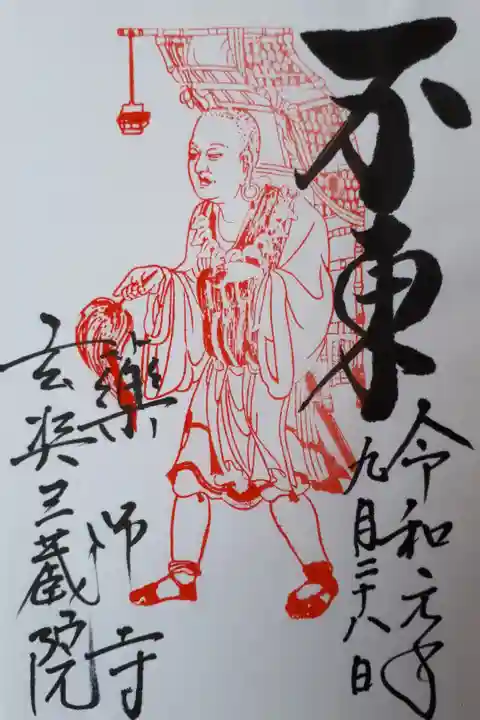 不東
令和元年
九月二十八日
薬師寺
玄奘三蔵院